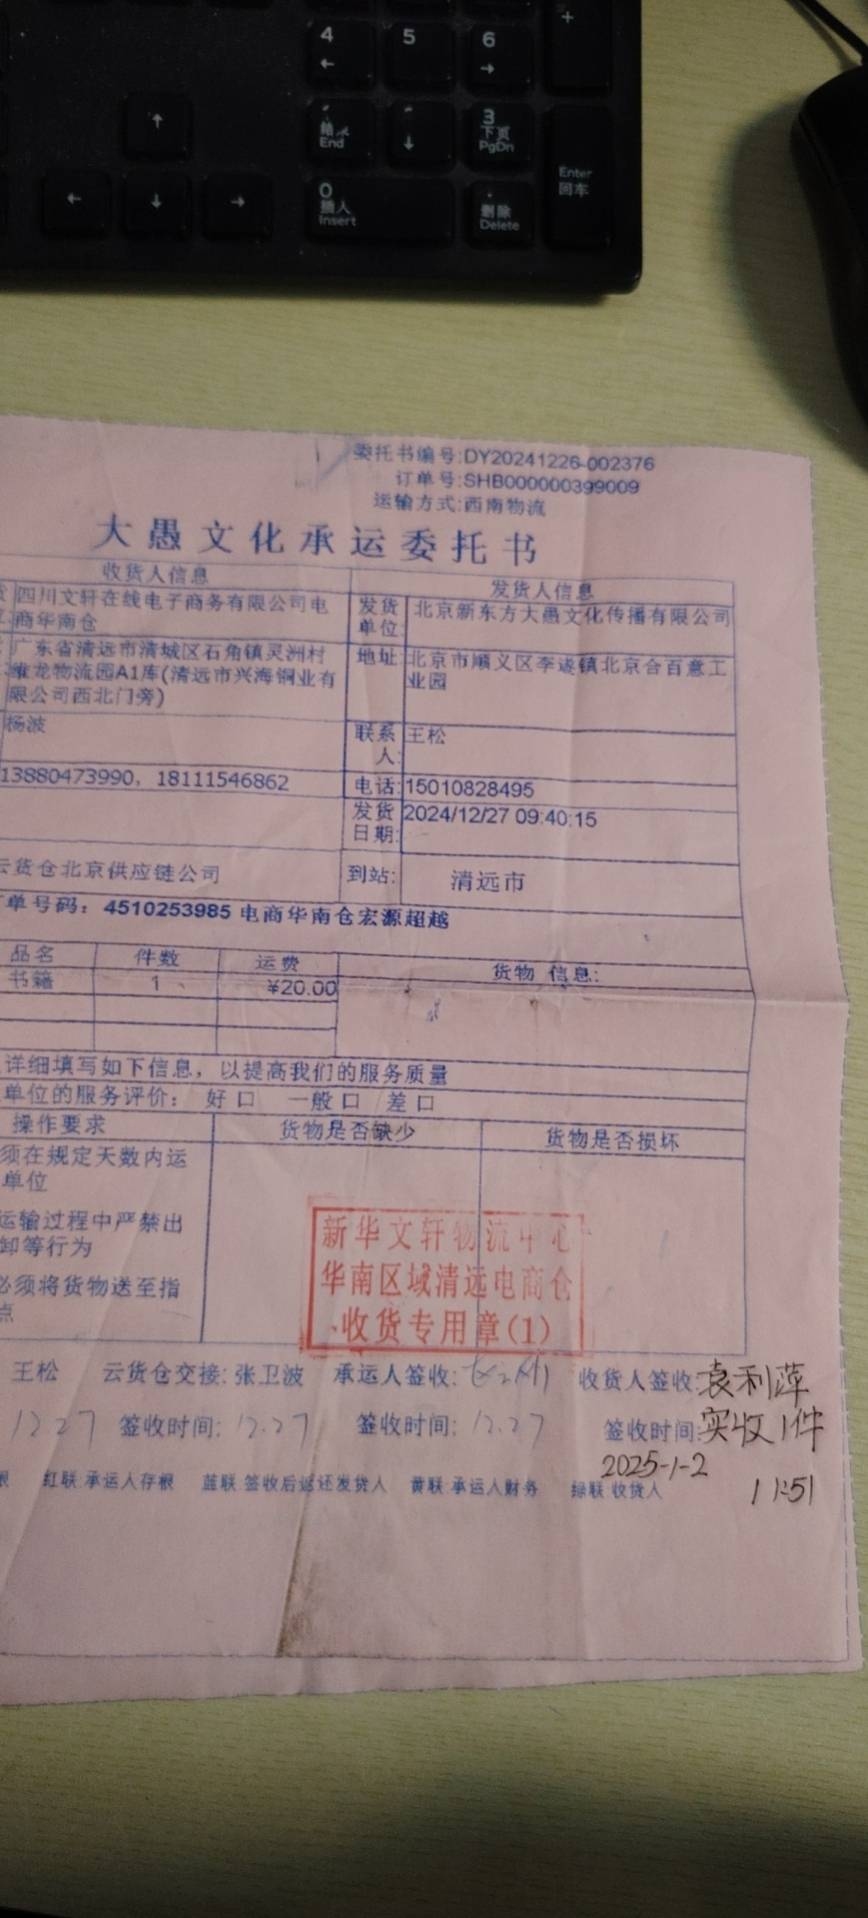 4
5
6
+
End
3
下页
PgDn
Enter
回车
0
插入
Insert
删除
Delete
委托书编号:DY20241226-002376
订单号:SHB000000399009
运输方式:西南物流
大愚文化承运委托书
收货人信息 发货人信息
四川文轩在线电子商务有限公司电商华南仓
发货单位: 北京新东方大愚文化传播有限公司
广东省清远市清城区石角镇灵洲村
雄龙物流园A1库(清远市兴海铜业有限公司西北门旁)
地址: 北京市顺义区李遂镇北京合百意工业园
杨波 联系人: 王松
13880473990, 18111546862 电话: 15010828495
发货日期: 2024/12/27 09:40:15
云货仓北京供应链公司 到站: 清远市
单号码: 4510253985 电商华南仓宏源超越
品名 件数 运费 货物 信息:
书籍 1 ¥20.00
详细填写如下信息，以提高我们的服务质量
单位的服务评价: 好口 一般口 差口
操作要求 货物是否缺少 货物是否损坏
须在规定天数内运
单位
运输过程中严禁出
卸等行为
必须将货物送至指
点
新华文轩物流中心
华南区域清远电商仓
收货专用章(1)
王松 云货仓交接: 张卫波 承运人签收: 收货人签收: 袁利萍
12 27 签收时间: 12.27 签收时间: 12.27 签收时间: 实收1件
2025-1-2
根 红联:承运人存根 蓝联:签收后返还发货人 黄联:承运人财务 绿联:收货人 11:51